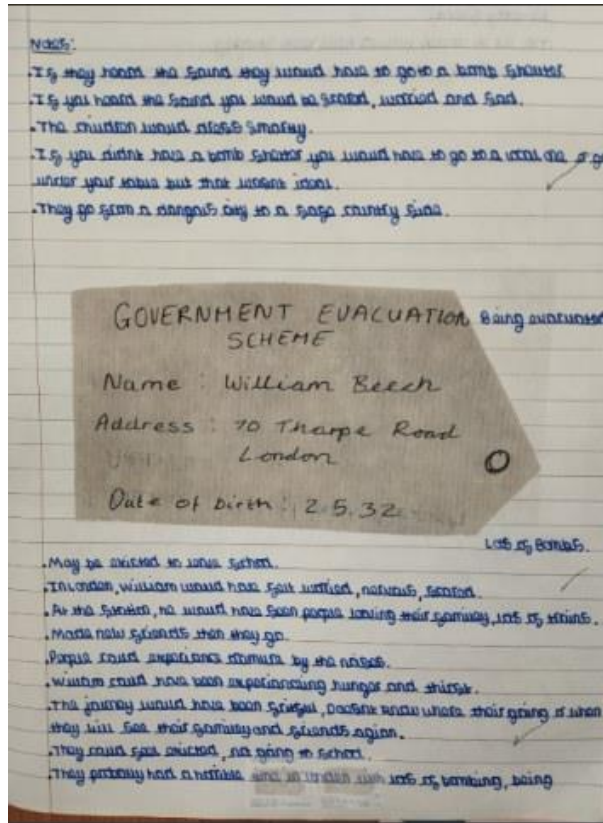 Notes:
.If they heard the sound they would have to go to a bomb shelter
.If you heard the sound you would be scared, worried and sad.
.The children would dress smartly.
.If you didnt have a bomb shelter you would have to go to a local one or go
under your table but that wasent ideal.
.They go from a dangous city to a safe country side.
GOVERNMENT EVACUATION
SCHEME
Being evacuated
Name : William Beech
Address : 70 Tharpe Road
London
Date of birth : 2.5.32
Lots of Bombs.
.May be exicted to leave school.
.In London, William would have felt worried, nervous, scared.
.At the station, he would have seen people leaving their familey, lots of trains.
.Made new friends then they go.
.People could experiance by the noises.
.William could have been experiancing hunger and thirst.
.The journey would have been , Doesnt know where their going or when
they will see their familey and friends agian.
.They could feel exicted, no going to school.
.They probally had a horrible in with lots of bombing, being